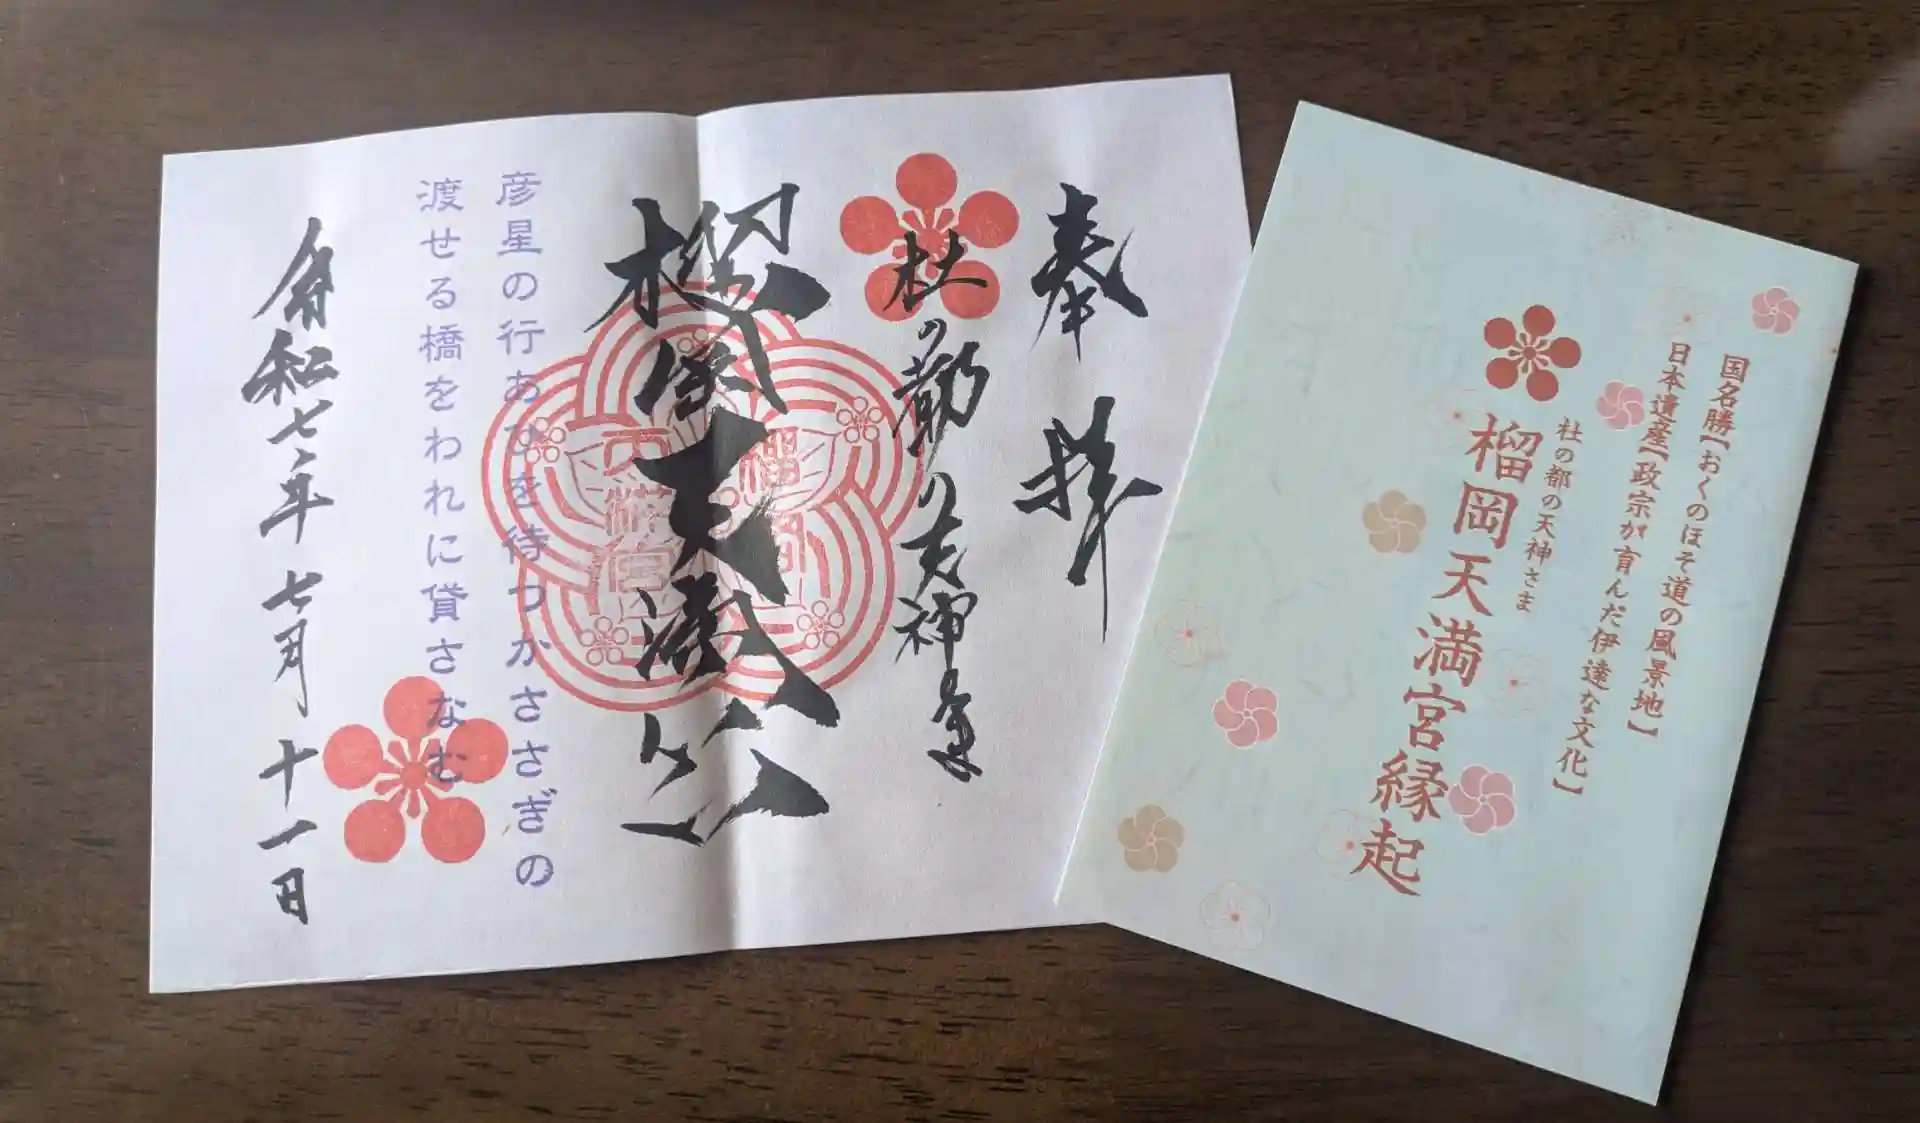 奉拝
杜の都の天神さま
榴岡天満宮
彦星の行あひを待つかささぎの
渡せる橋をわれに貸さなむ
令和七年七月十一日
榴岡
天満宮
国名勝【おくのほそ道の風景地】
日本遺産【政宗が育んだ伊達な文化】
杜の都の天神さま
榴岡天満宮縁起